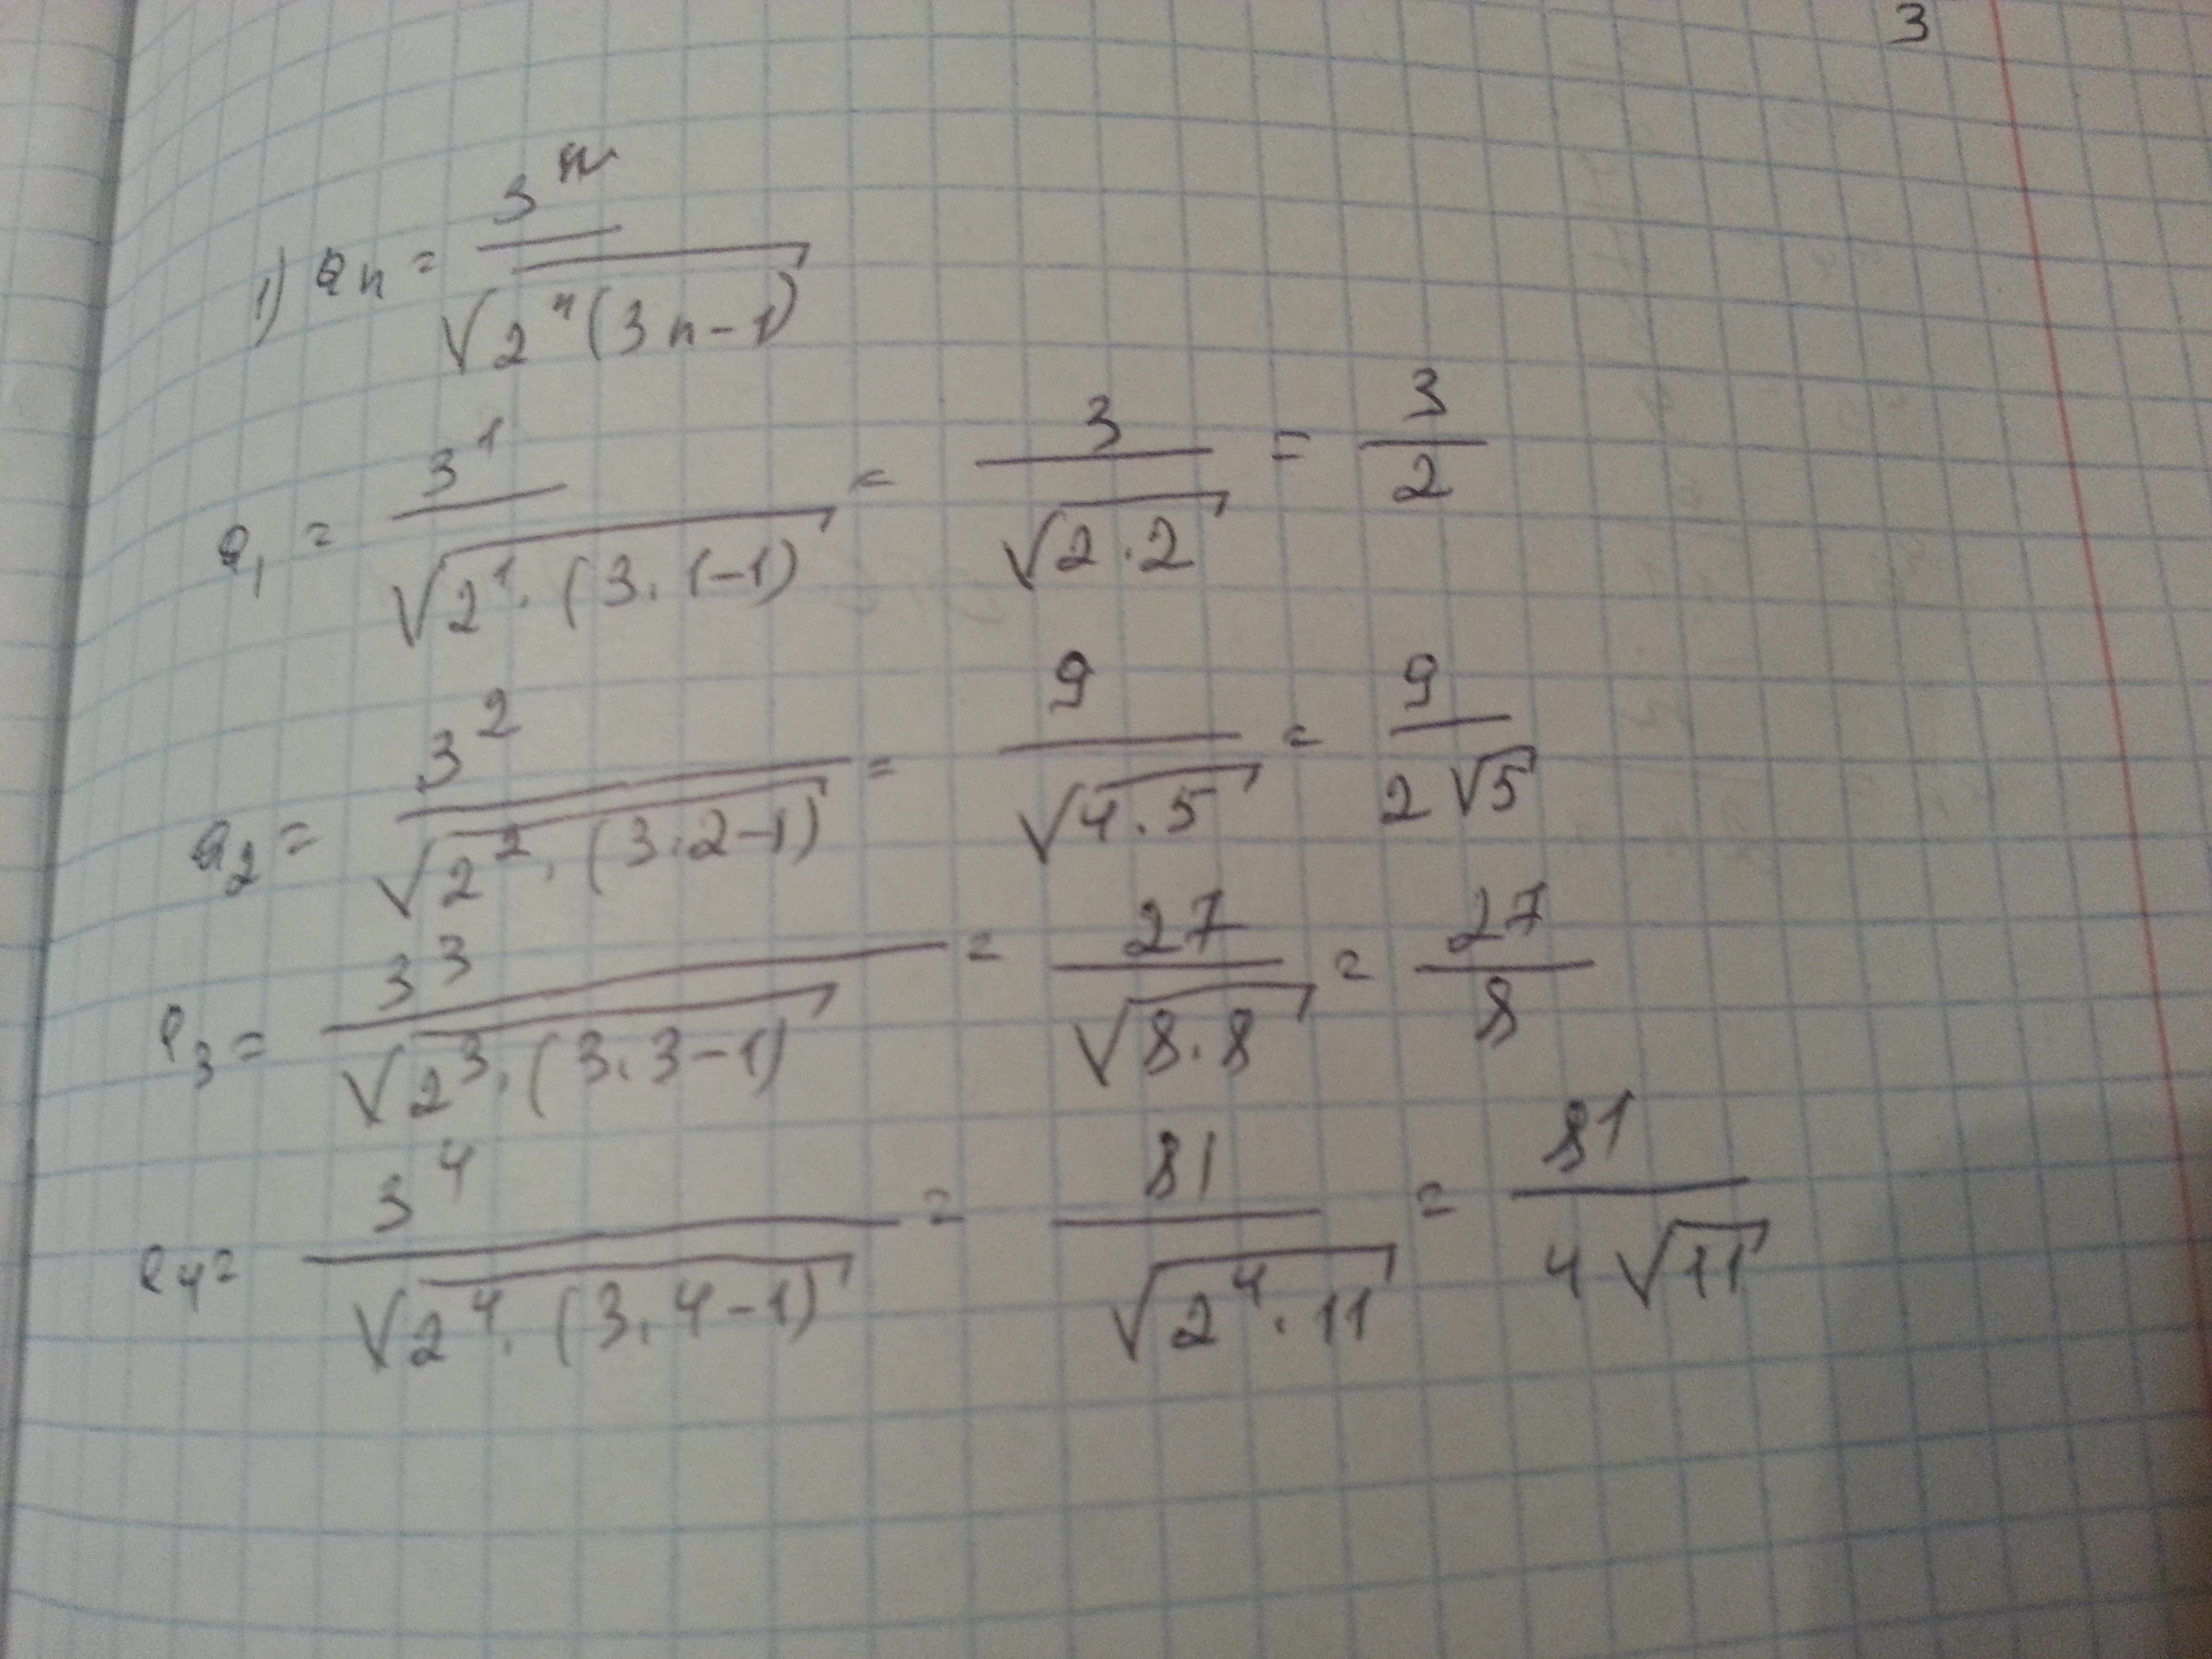 3
1) a_n = 3^n / √(2^n(3n-1))
a_1 = 3^1 / √(2^1·(3·1-1)) = 3 / √(2·2) = 3/2
a_2 = 3^2 / √(2^2·(3·2-1)) = 9 / √(4·5) = 9 / 2√5
a_3 = 3^3 / √(2^3·(3·3-1)) = 27 / √(8·8) = 27/8
a_4 = 3^4 / √(2^4·(3·4-1)) = 81 / √(2^4·11) = 81 / 4√11